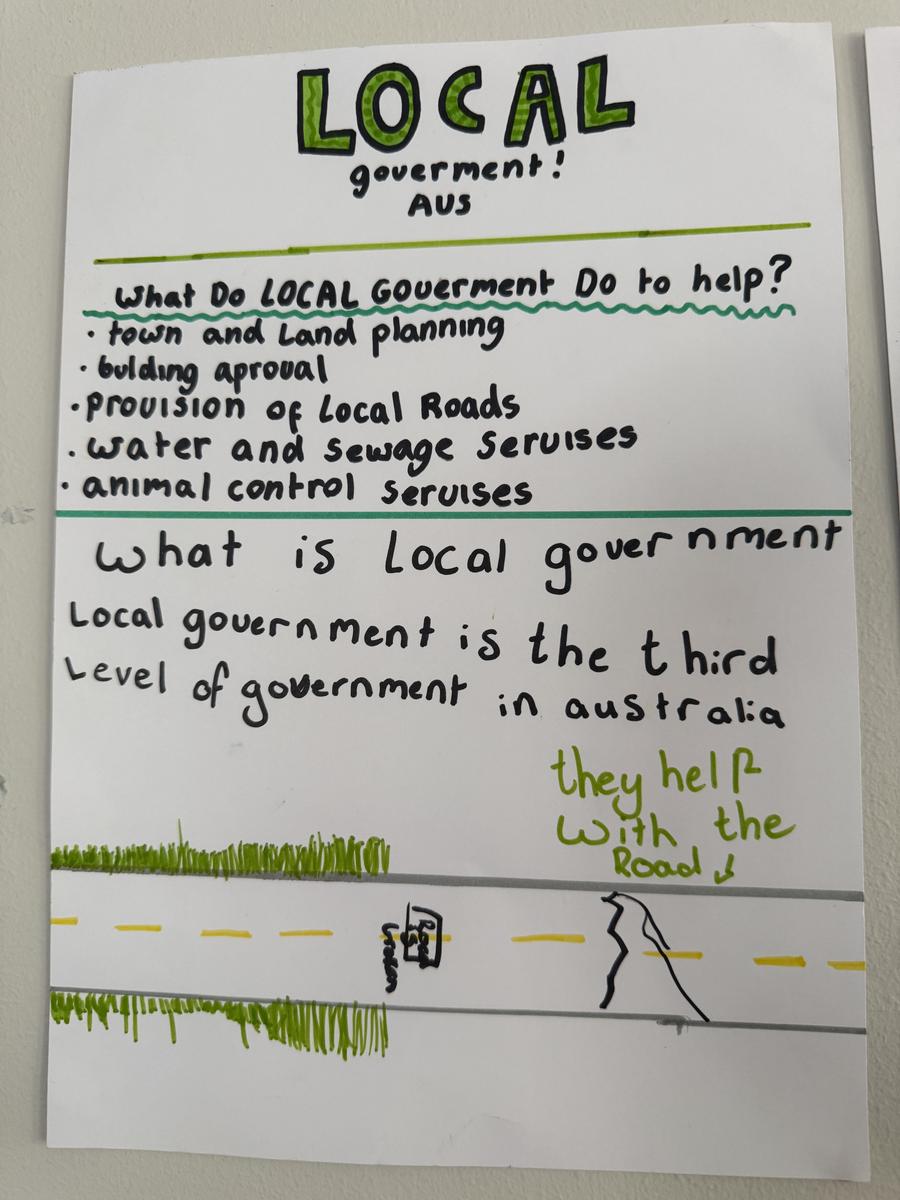 LOCAL
goverment!
AUS
what Do LOCAL Goverment Do to help?
• town and Land planning
• bulding aproval
• provision of Local Roads
• water and sewage servises
• animal control servises
what is Local government
Local government is the third
Level of government in australia
they help
with the
Road ↓
Road
is